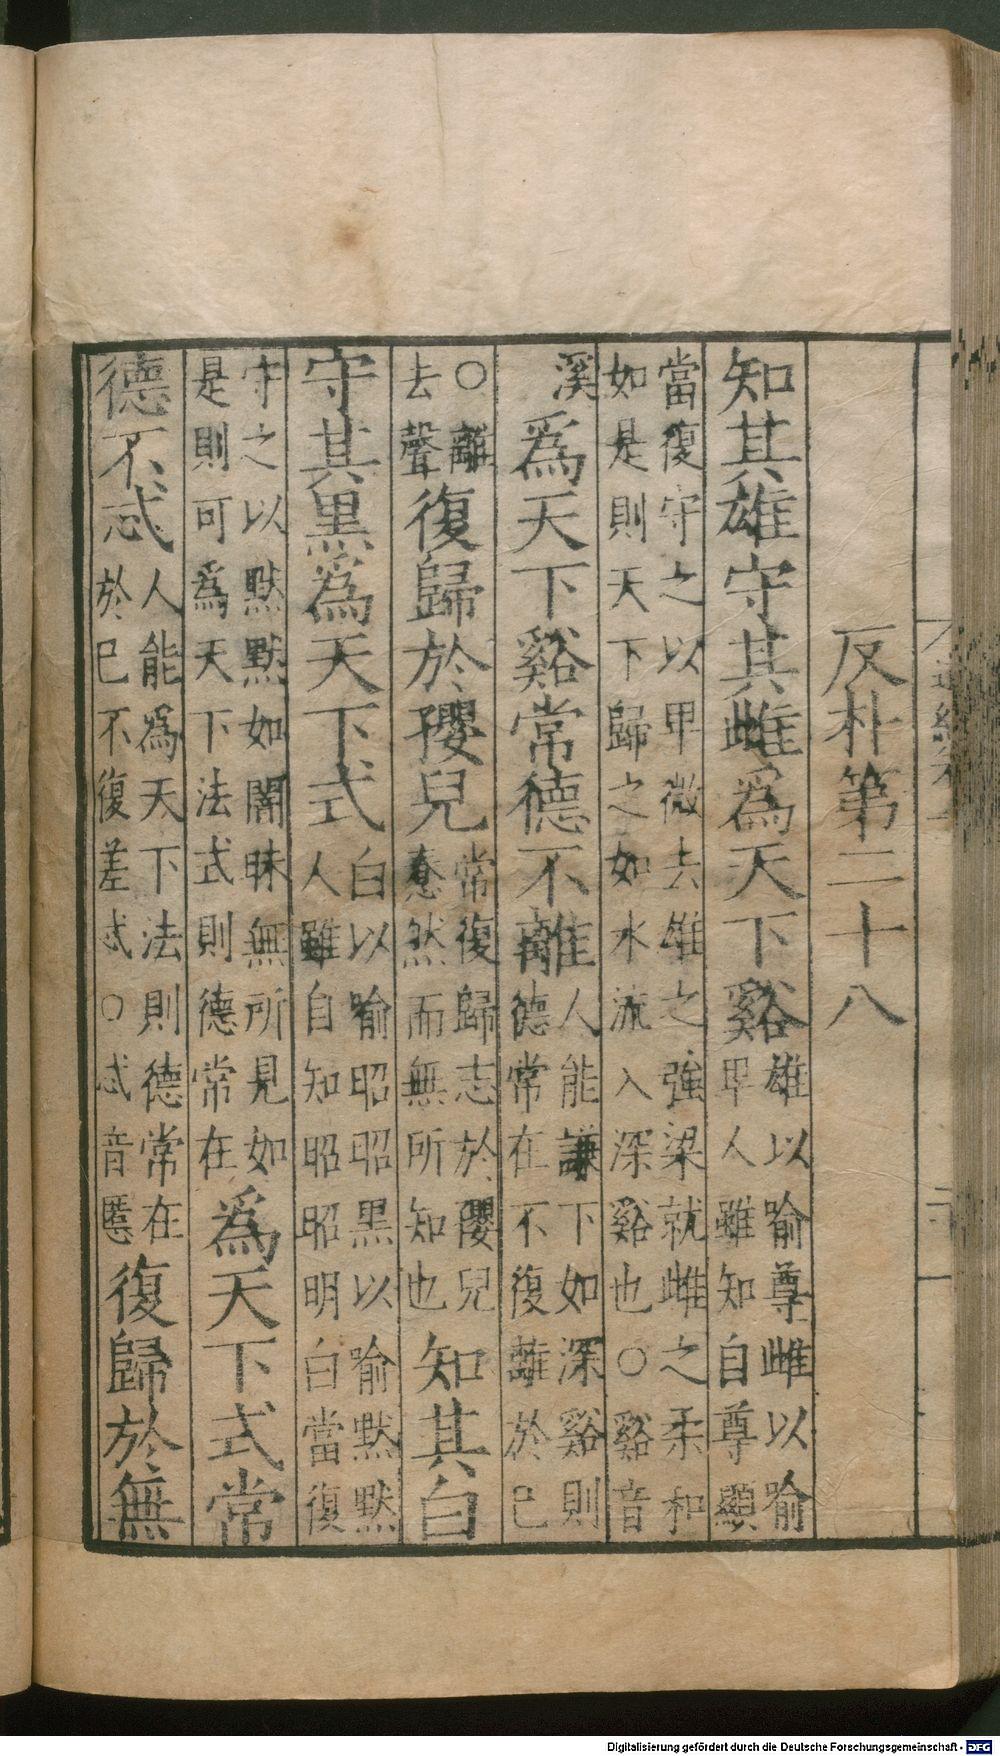 反朴第二十八
知其雄守其雌爲天下谿雄以喻尊雌以喻
卑人雖知自尊顯
當復守之以卑微去雄之強梁就雌之柔和
如是則天下歸之如水流入深谿也○谿音
溪爲天下谿常德不離人能謙下如深谿則
德常在不復離於已
○離
去聲復歸於孾兒常復歸志於孾兒
惷然而無所知也知其白
守其黑爲天下式白以喻昭昭黑以喻默默
人雖自知昭昭明白當復
守之以默默如闇昧無所見如
是則可爲天下法式則德常在爲天下式常
德不忒人能爲天下法則德常在
於已不復差忒○忒音慝復歸於無
Digitalisierung gefördert durch die Deutsche Forschungsgemeinschaft - DFG